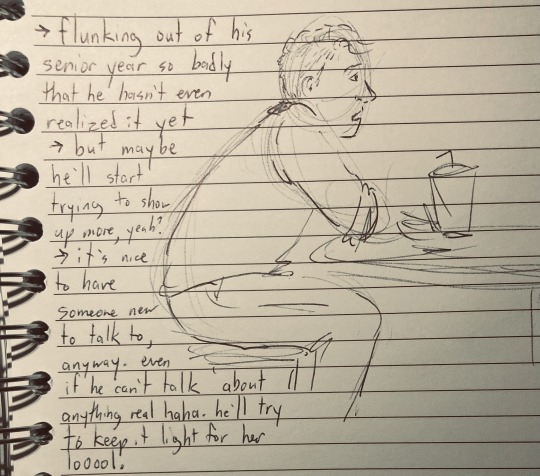 → flunking out of his
senior year so badly
that he hasn't even
realized it yet
→ but maybe
he'll start
trying to show
up more, yeah?
→ it's nice
to have
someone new
to talk to,
anyway. even
if he can't talk about
anything real haha. he'll try
to keep it light for her
looool.